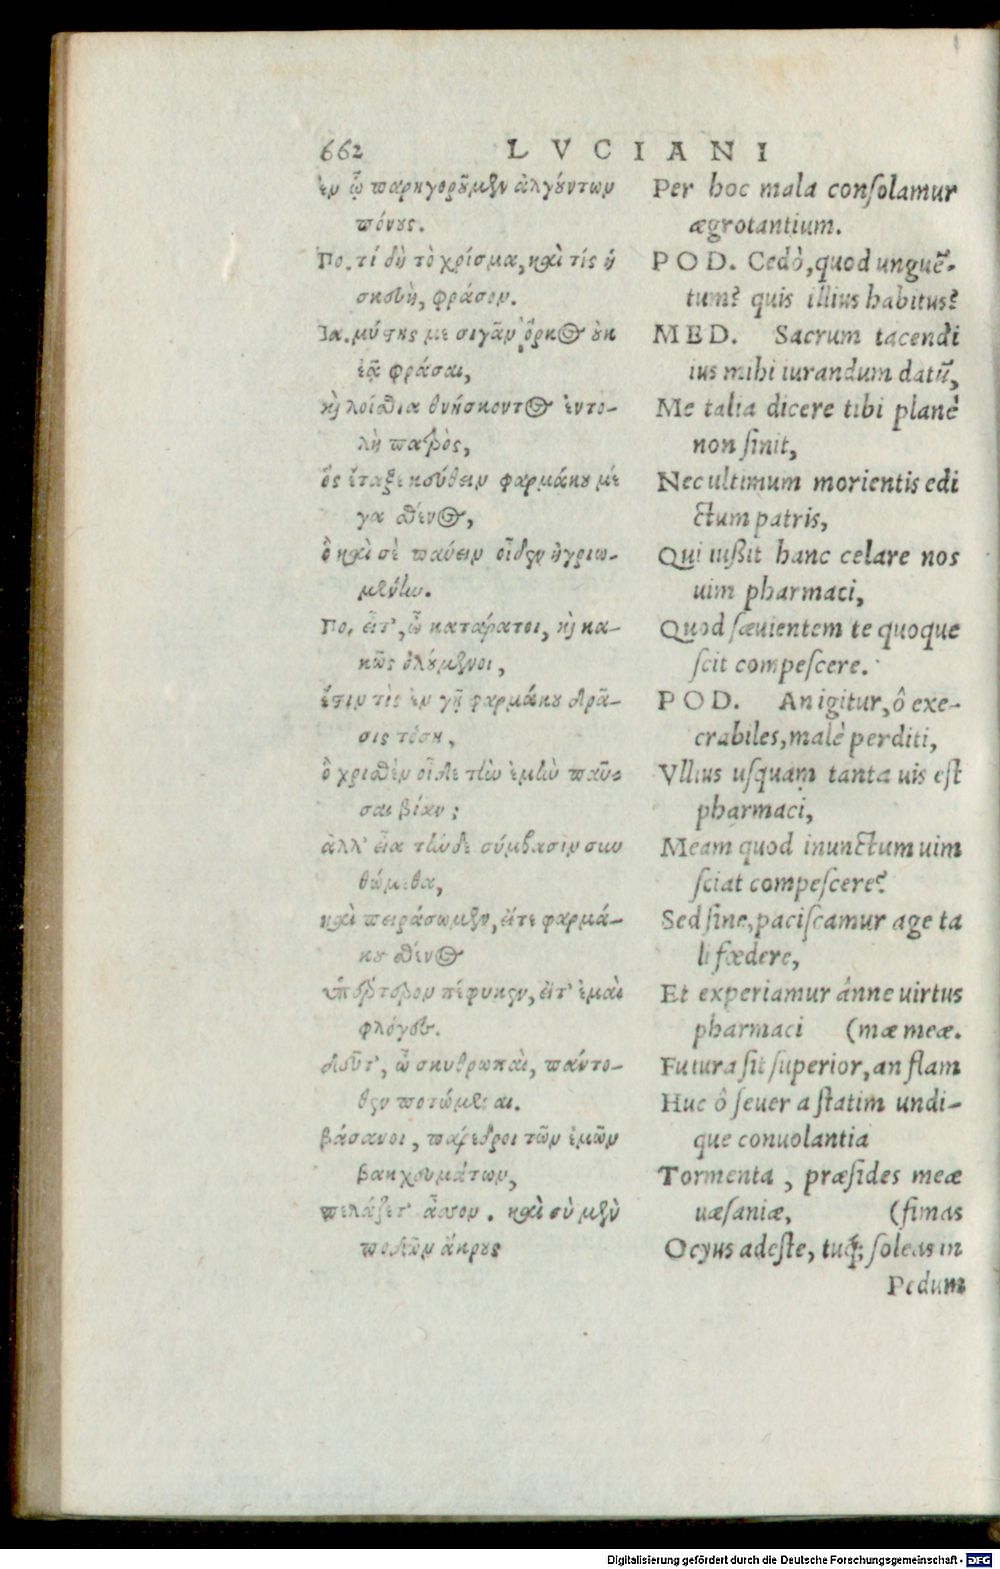 662 LVCIANI
ἐν ᾧ παρηγοροῦμεν ἀλγούντων
πόνους.
Πο. τί δὴ τὸ χρίσμα, καὶ τίς ἡ
σκευὴ, φράσον.
Ἰα. μύστης με σιγᾶν ὅρκος οὐκ
ἐᾷ φράσαι,
καὶ λοίσθια θνήσκοντος ἐντο-
λὴ πατρὸς,
ὃς ἔταξε κεύθειν φαρμάκου μέ
γα σθένος,
ὃ καὶ σὲ παύειν οἶδεν ἠγριω-
μένην.
Πο. εἶτ', ὦ κατάρατοι, καὶ κα-
κῶς ὀλούμενοι,
ἔστιν τὶς ἐν γῇ φαρμάκου δρᾶ-
σις τόση,
ὃ χρισθὲν οἶδε τὴν ἐμὴν παῦ-
σαι βίαν;
ἀλλ' εἶα τήνδε σύμβασιν συν
θώμεθα,
καὶ πειράσωμεν, εἴτε φαρμά-
κου σθένος
ὑπέρτερον πέφυκεν, εἴτ' ἐμαὶ
φλόγες.
δεῦτ', ὦ σκυθρωπαὶ, πάντο-
θεν ποτώμεναι.
βάσανοι, πάρεδροι τῶν ἐμῶν
βακχευμάτων,
πελάζετ' ἆσσον. καὶ σὺ μὲν
ποδῶν ἄκρους
Per hoc mala conſolamur
ægrotantium.
POD. Cedò, quod unguẽ-
tum? quis illius habitus?
MED. Sacrum tacendi
ius mihi iurandum datũ,
Me talia dicere tibi planè
non ſinit,
Nec ultimum morientis edi
ctum patris,
Qui iußit hanc celare nos
uim pharmaci,
Quod ſæuientem te quoque
ſcit compeſcere.
POD. An igitur, ô exe-
crabiles, malè perditi,
Vllius uſquam tanta uis eſt
pharmaci,
Meam quod inunctum uim
ſciat compeſcere?
Sed ſine, paciſcamur age ta
li fœdere,
Et experiamur ánne uirtus
pharmaci (mæ meæ.
Futura ſit ſuperior, an flam
Huc ô ſeuera ſtatim undi-
que conuolantia
Tormenta, præſides meæ
uæſaniæ, (fimas
Ocyus adeſte, tuq́; ſoleas in
Pedum
Digitalisierung gefördert durch die Deutsche Forschungsgemeinschaft - DFG